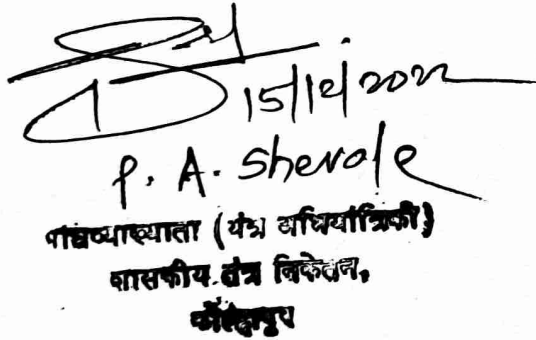 15/12/2022
P. A. Shevale
पाठ्यव्याख्याता (यंत्र अभियांत्रिकी)
शासकीय तंत्र निकेतन,
कोल्हापुर